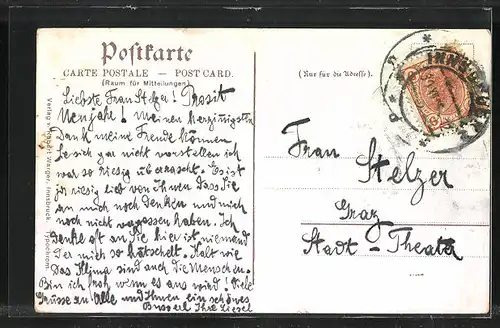 Postkarte
CARTE POSTALE — POST CARD.
(Raum für Mitteilungen)
(Nur für die Adresse).
Liebste Frau Stelzer! Prosit
Neujahr! meinen herzinnigsten
Dank meine Freude können
Sie sich gar nicht vorstellen ich
war so riesig überrascht. Es ist
ja riesig lieb von Ihnen dass Sie
an mich noch denken und mich
noch nicht vergessen haben. Ich
denke oft an Sie hier ist niemand
der mich so hätschelt. Kalt wie
das Klima sind auch die Menschen.
Bin ich froh wenn es aus wird! Viele
Grüsse an Alle und Ihnen ein schönes
Busserl Ihre Liesel
Frau Stelzer
Graz
Stadt-Theater
Verlag Warger, Innsbruck. Typochrom.